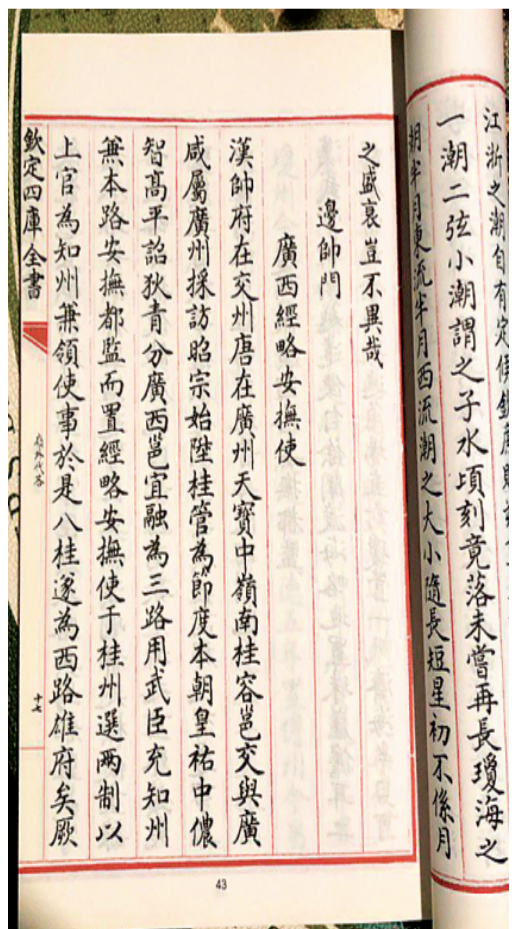 江浙之潮自有定候
一潮二弦小潮謂之子水頃刻竟落未嘗再長瓊海之
朔半月東流半月西流潮之大小隨長短星初不係月
之盛衰豈不異哉
邊帥門
廣西經略安撫使
漢帥府在交州唐在廣州天寶中嶺南桂容邕交與廣
咸屬廣州採訪昭宗始陞桂管為節度本朝皇祐中儂
智高平詔狄青分廣西邕宜融為三路用武臣充知州
兼本路安撫都監而置經略安撫使于桂州選兩制以
上官為知州兼領使事於是八桂遂為西路雄府矣厥
欽定四庫全書
嶺外代答
十七
43